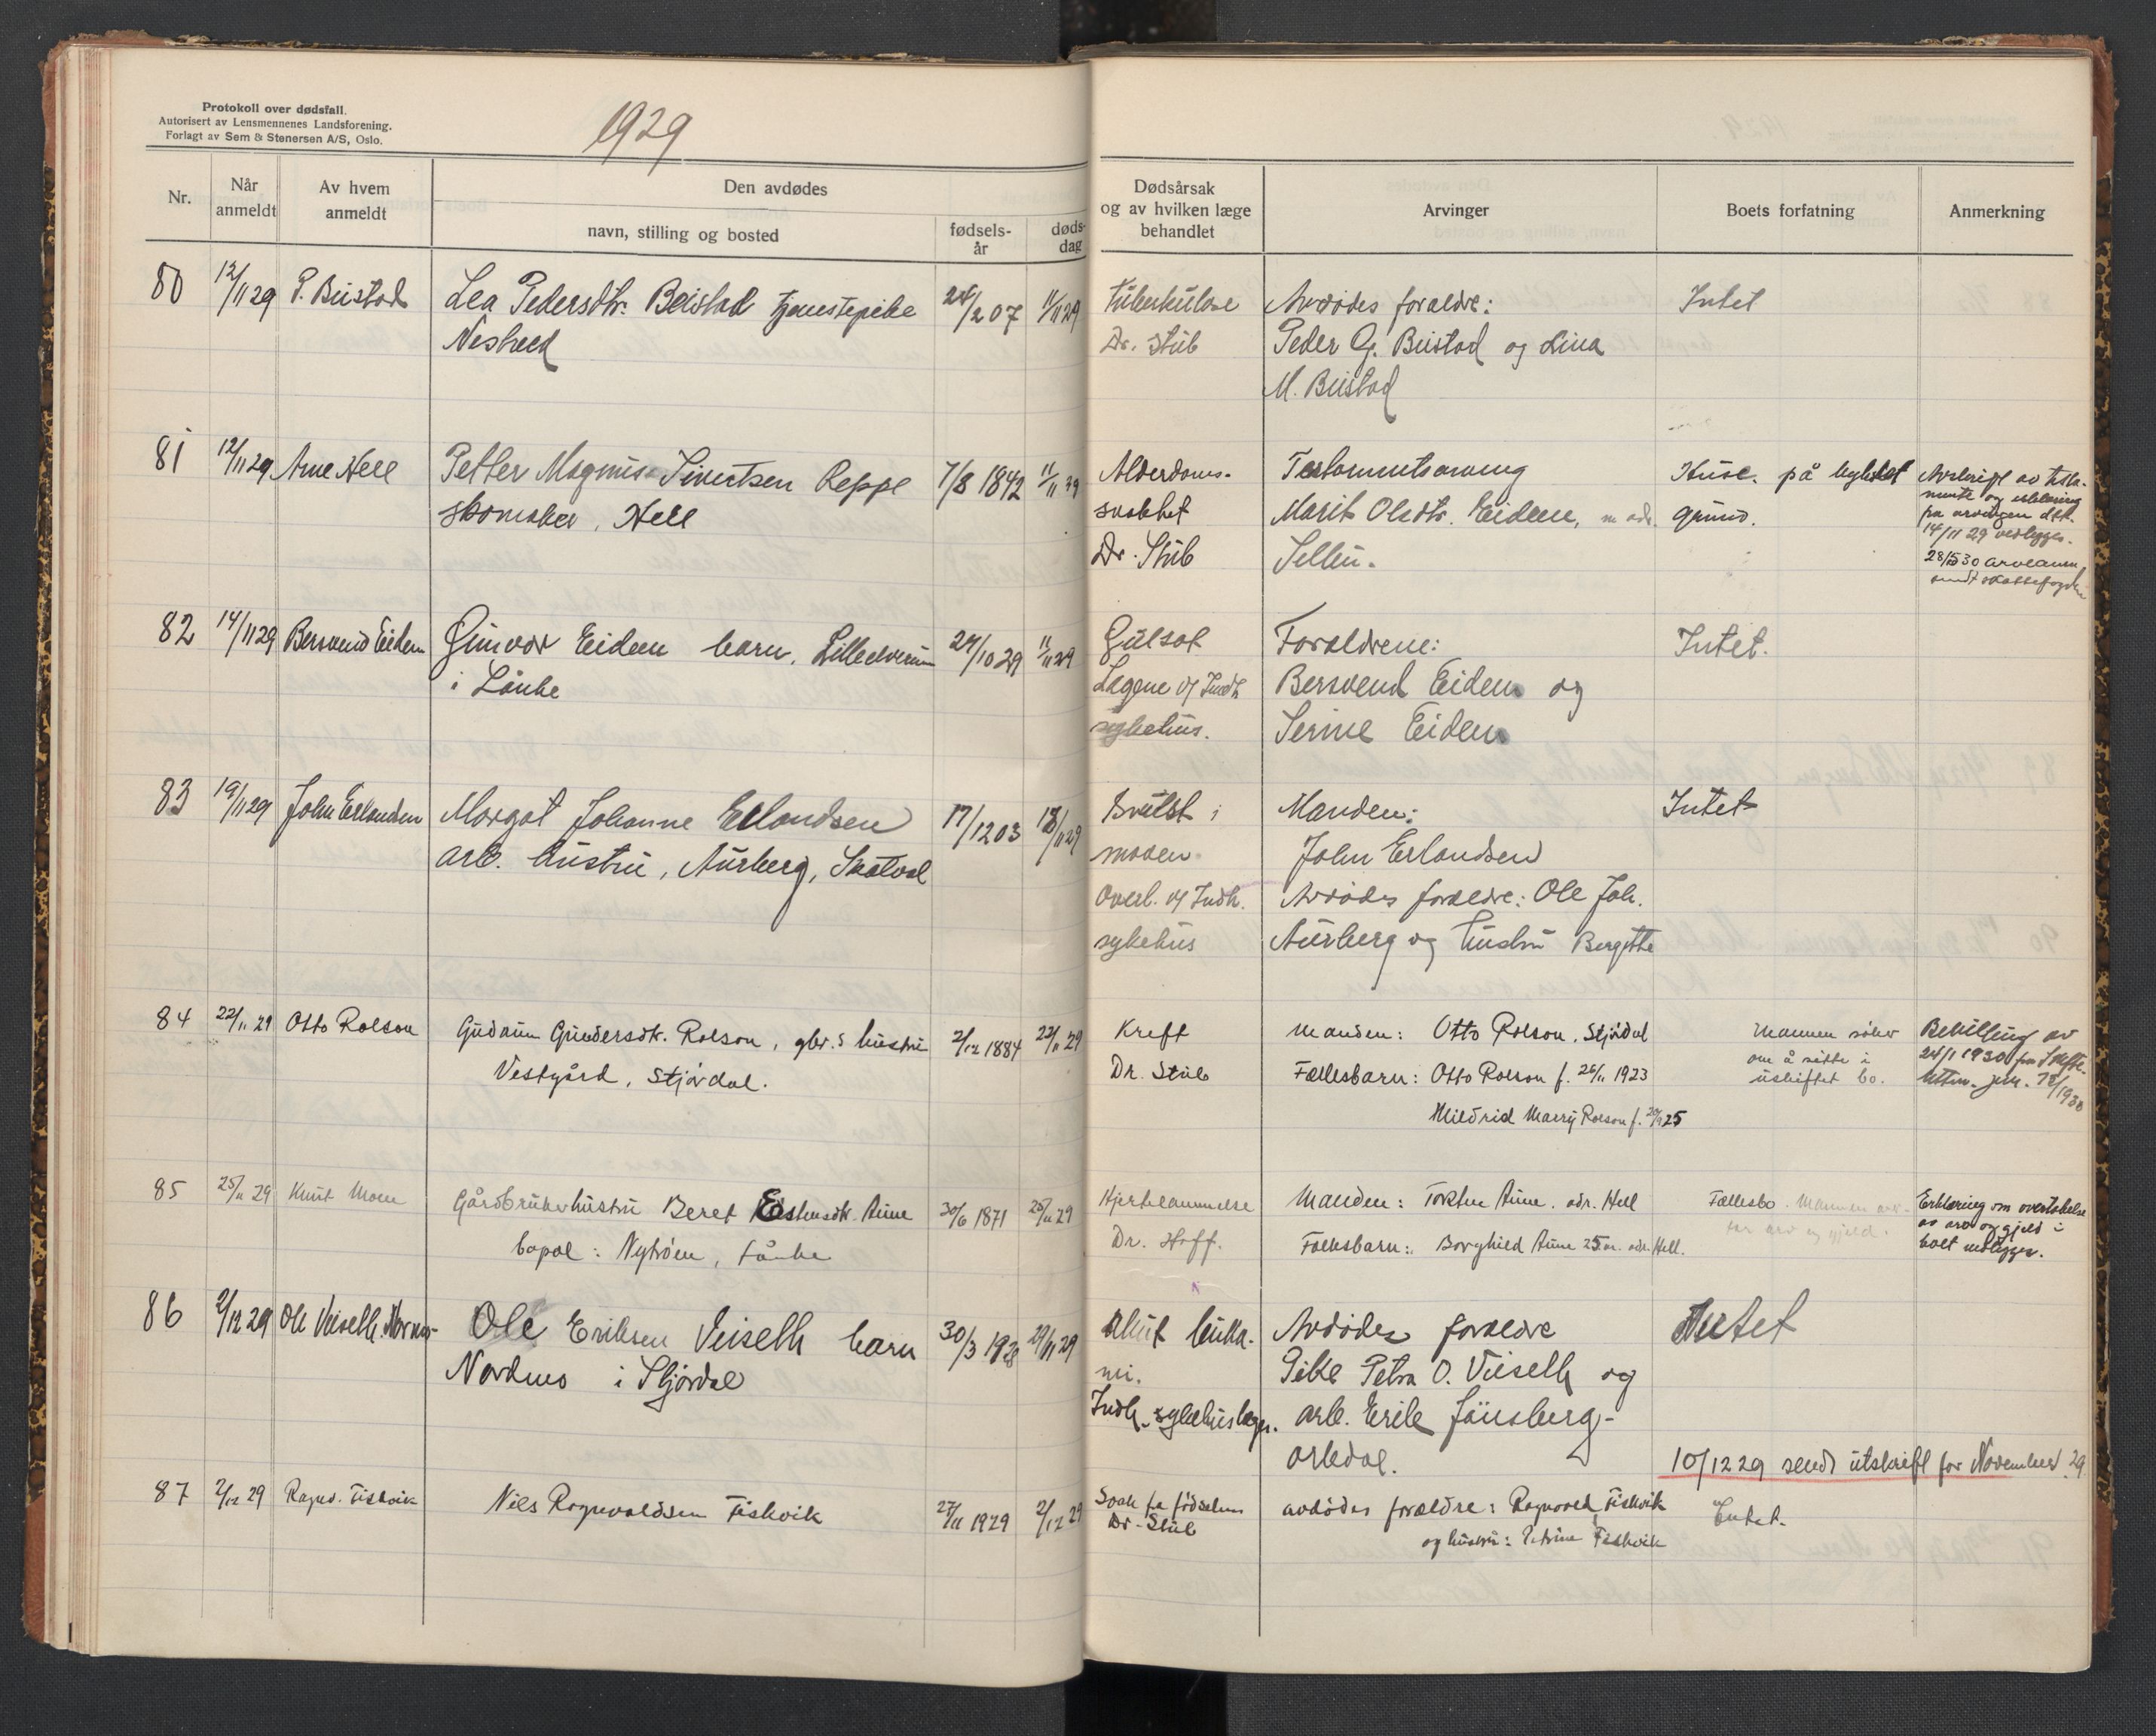 Protokoll over dødsfall.
Autorisert av Lensmennenes Landsforening.
Forlagt av Sem & Stenersen A/S, Oslo.
1929
Nr.
Når anmeldt
Av hvem anmeldt
Den avdødes
navn, stilling og bosted
fødsels-
år
døds-
dag
Dødsårsak
og av hvilken læge
behandlet
Arvinger
Boets forfatning
Anmerkning
80 12/11 29 P. Beistad Lea Pedersdtr. Beistad tjenestepike 24/2 07 11/11 29 Tuberkulose Avdødes foraldre: Intet
Dr. Stub Peder G. Beistad og Lina
M. Beistad
81 12/11 29 Arne Hell Petter Magnus Sivertsen Reppe 7/8 1842 11/11 29 Alderdoms- Testamentsarving Huse. på bygslet
skomaker, Hell svakhet Marit Olsdtr. Eidem, grund.
Dr. Stub
Avskrift av testa-
mente og erklæring
fra arvingen
14/11 29 vedlegges.
28/5 30
82 14/11 29 Bersvend Eidem Gunvor Eidem barn, 24/10 29 11/11 29 Gulsot Foraldrene: Intet.
i Lånke Lægene v/ Indh. Bersvend Eidem og
sykehus. Serine Eidem
83 19/11 29 John Erlandsen Margot Johanne Erlandsen 17/12 03 18/11 29 Svulst i Manden: Intet
arb. hustru, Aurberg, Skatval maven. John Erlandsen
Overl. v/ Indh. Avdødes foreldre: Ole Joh.
sykehus Aurberg og hustru Bergitte
84 22/11 29 Otto Rolson Gudrun Gundersdtr. Rolson, gbr.s hustru 2/12 1884 22/11 29 Kreft Manden: Otto Rolson, Stjørdal Mannen søker
Vestgård, Stjørdal. Dr. Stub Fællesbarn: Otto Rolson f. 26/11 1923 om å sitte i
uskiftet bo.
Mildrid Marry Rolson f. 25
Bevilling av
24/1 1930 fra Skifte-
1930
85 25/11 29 Knut Moen Gårdbrukerhustru Beret Estensdtr. Aune 30/6 1871 25/11 29 Hjertelammelse Manden: Torsten Aune. adr. Hell Fællesbo. Mannen
bopæl: Nytrøen, Lånke Dr. Hoff. Fællesbarn: Borghild Aune 25 år. adr. Hell. arv og gjeld.
Erklæring om overtakelse
av arv og gjeld i
boet vedlegges.
86 2/12 29 Ole Veiseth Ole Eriksen Veiseth barn 30/3 1928 29/11 29 Akut leukæ- Avdødes foreldre Intet
Nordmo i Stjørdal mi. Pike Petra O. Veiseth og
Indh. sykehus læger. arb. Erik Jønsberg-
10/12 29 sendt utskrift for November 29.
87 2/12 29 Ragnv. Fiskvik Nils Ragnvaldsen Fiskvik 27/11 1929 2/12 29 Svak fra fødselen avdødes foreldre: Ragnvald Fiskvik Intet.
Dr. Stub og hustru: Petrine Fiskvik